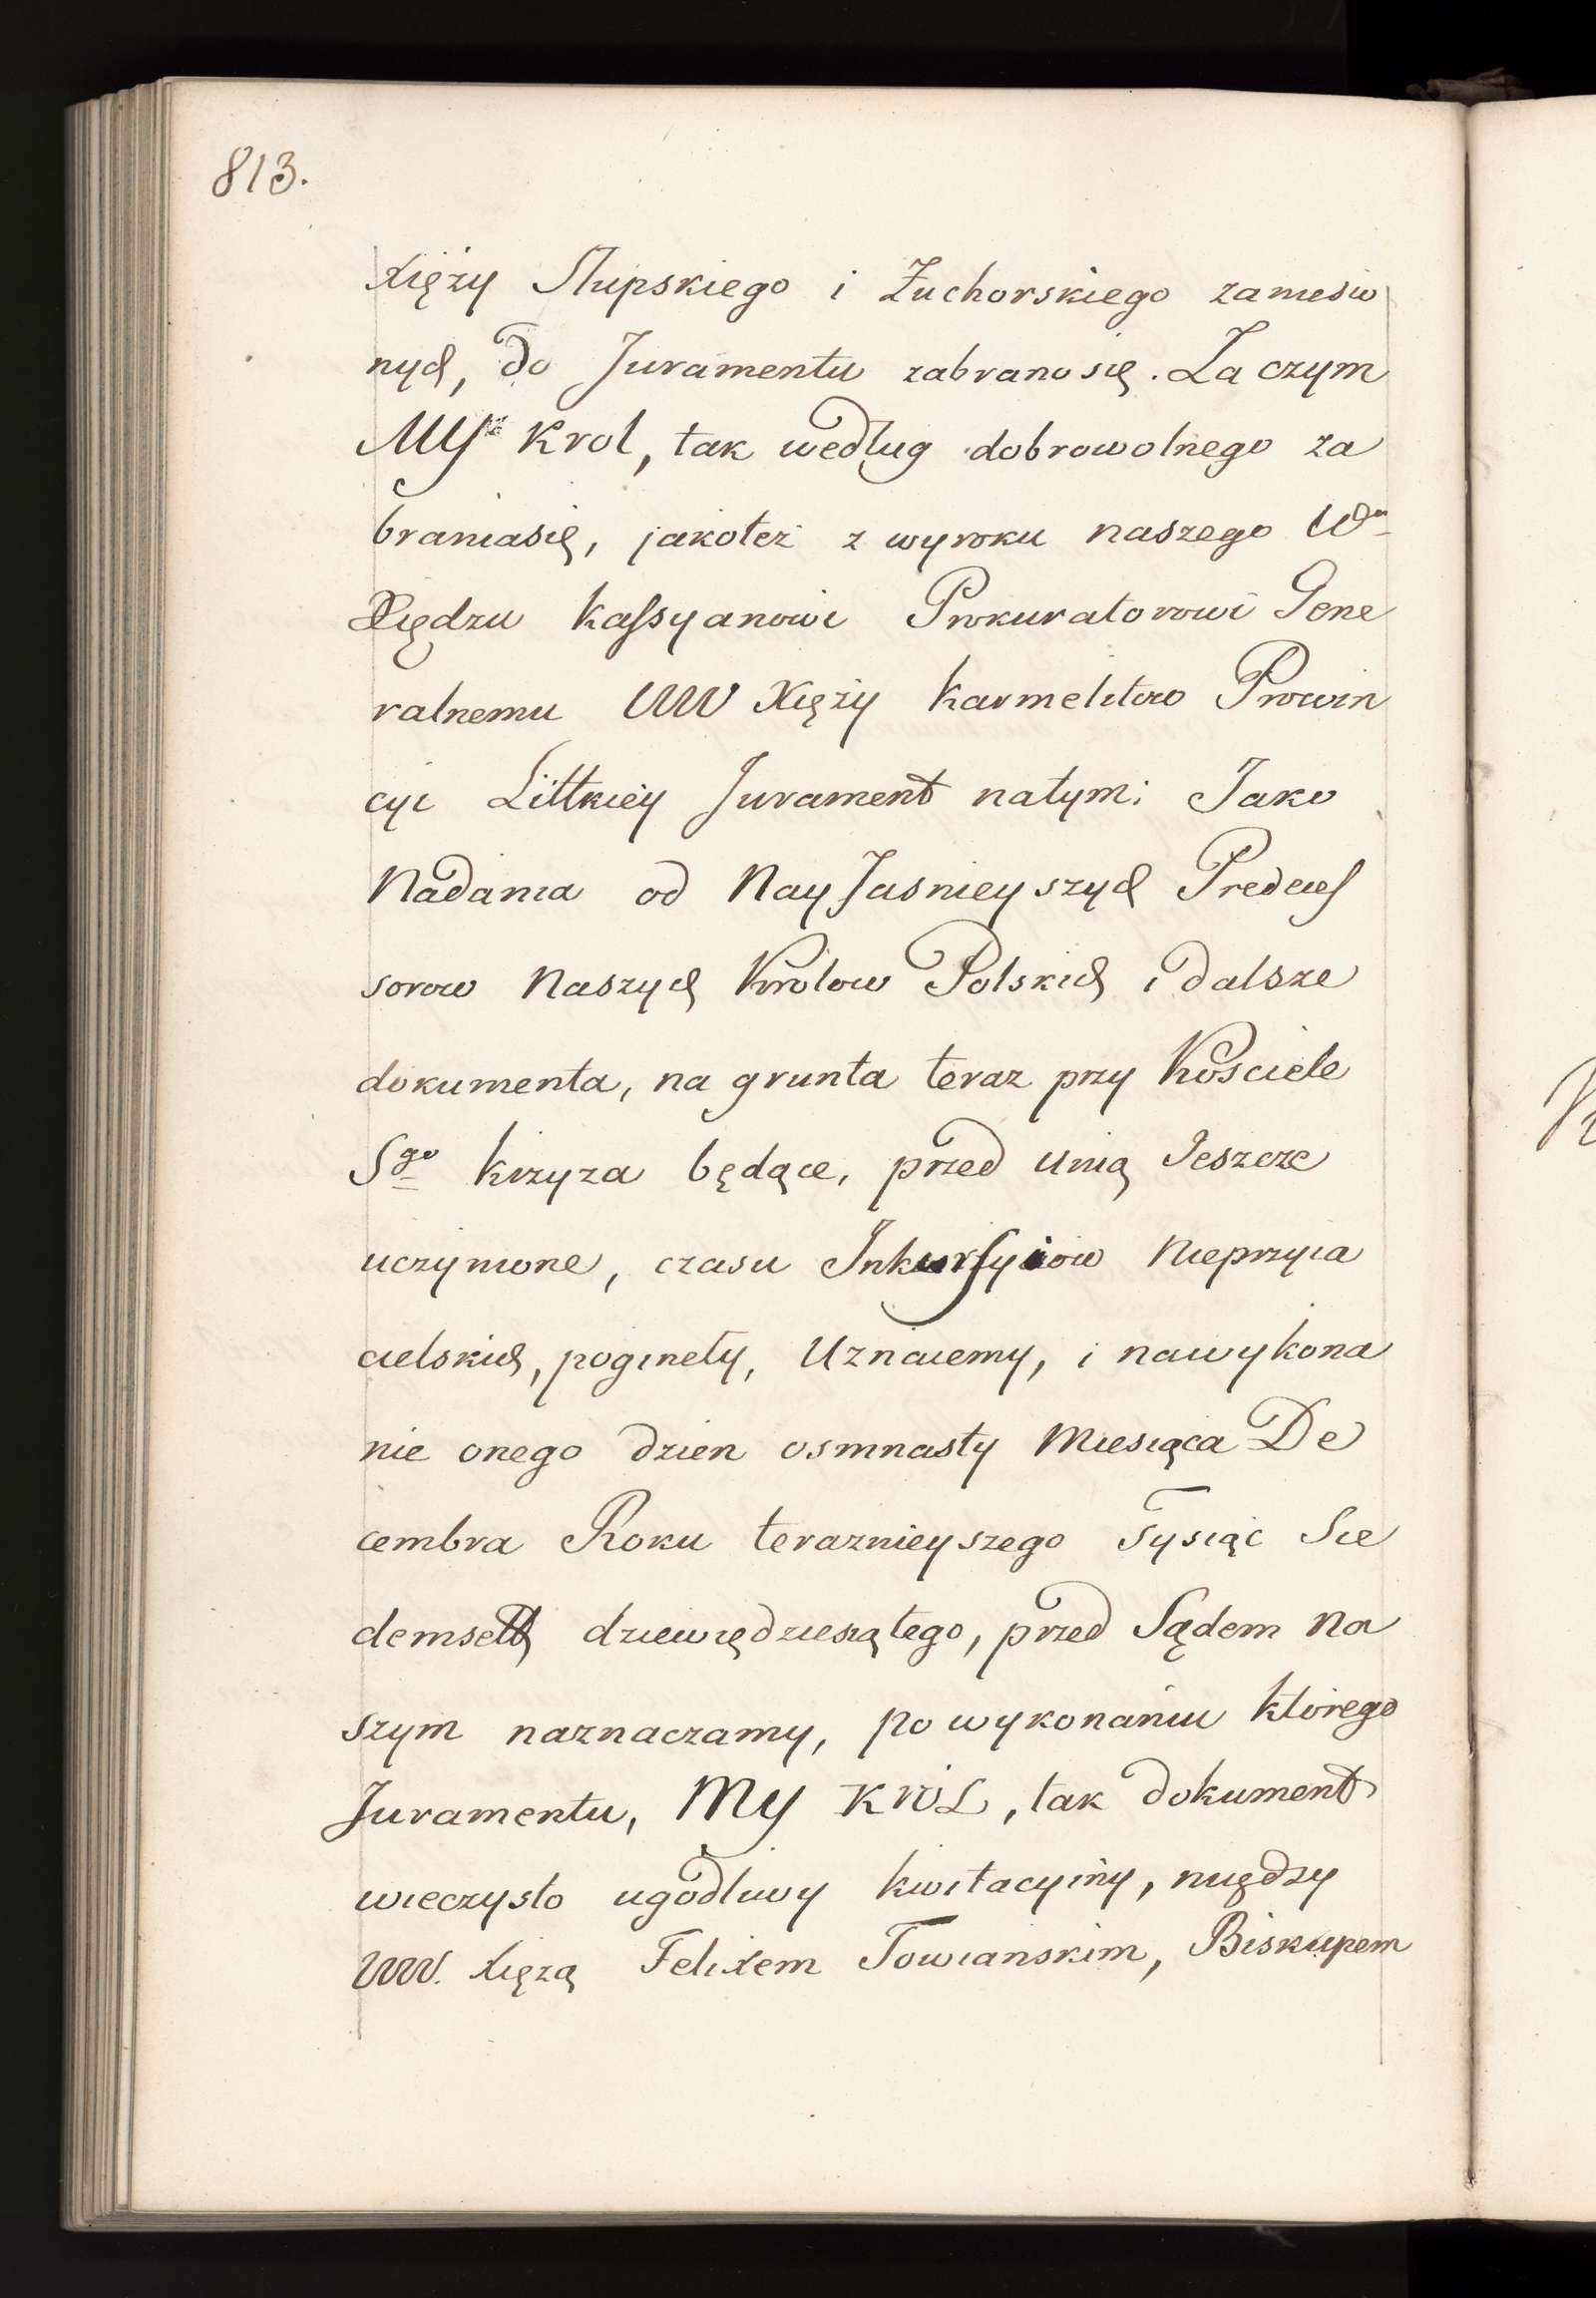 813.
Xięży Słupskiego i Żuchorskiego zaniesio
nych, do Juramentu zabrano się. Za czym
MY Krol, tak według dobrowolnego za
braniasię, jakoteż z wyroku naszego Wu
Xiędzu Kassyanowi Prokuratorowi Gene
ralnemu WW Xięży Karmelitow Prowin
cyi Littkiey Jurament natym: Jako
Nadania od NayJasnieyszych Predeces
sorow Naszych Krolow Polskich i dalsze
dokumenta, na grunta teraz przy Kościele
Sgo Krzyza będące, przed Unią Jeszcze
uczynione, czasu Inkursyiow Nieprzyia
cielskich, poginęły, Uznaiemy, i nawykona
nie onego dzien osmnasty Miesiąca De
cembra Roku teraznieyszego Tysiąc Sie
demseth dziewiędziesiątego, przed Sądem Na
szym naznaczamy, po wykonaniu którego
Juramentu, MY KRÓL, tak dokument
wieczysto ugodliwy kwitacyiny, między
WW. Xięzą Felixem Towianskim, Biskupem